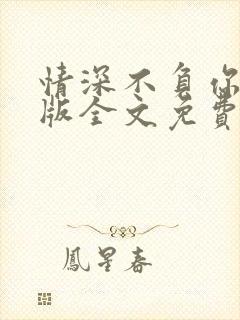 情深不负你
版全文免费
鳳星春